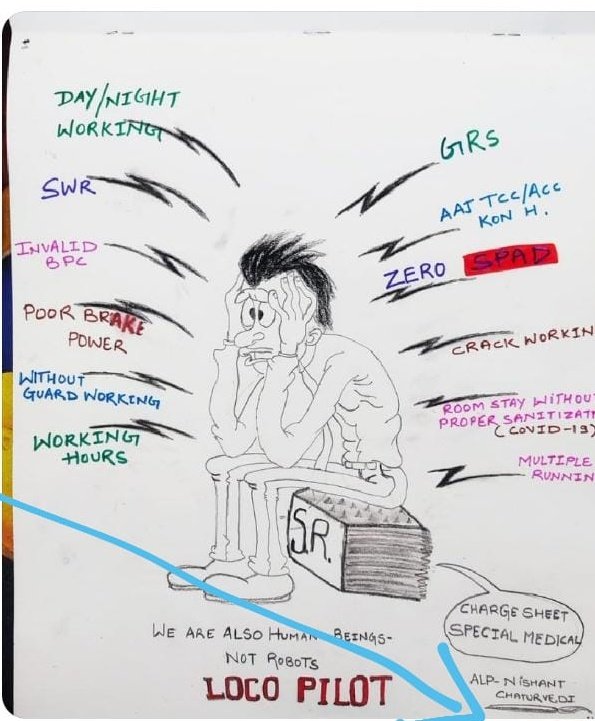 DAY/NIGHT
WORKING
SWR
INVALID
BPC
POOR BRAKE
POWER
WITHOUT
GUARD WORKING
WORKING
HOURS
GRS
AAJ TCC/ACC
KON H.
ZERO SPAD
CRACK WORKIN
ROOM STAY WITHOU
PROPER SANITIZAT
(COVID-19)
MULTIPLE
RUNNIN
S.R.
CHARGE SHEET
SPECIAL MEDICAL
WE ARE ALSO HUMAN BEINGS-
NOT ROBOTS
LOCO PILOT
ALP- NISHANT
CHATURVEDI